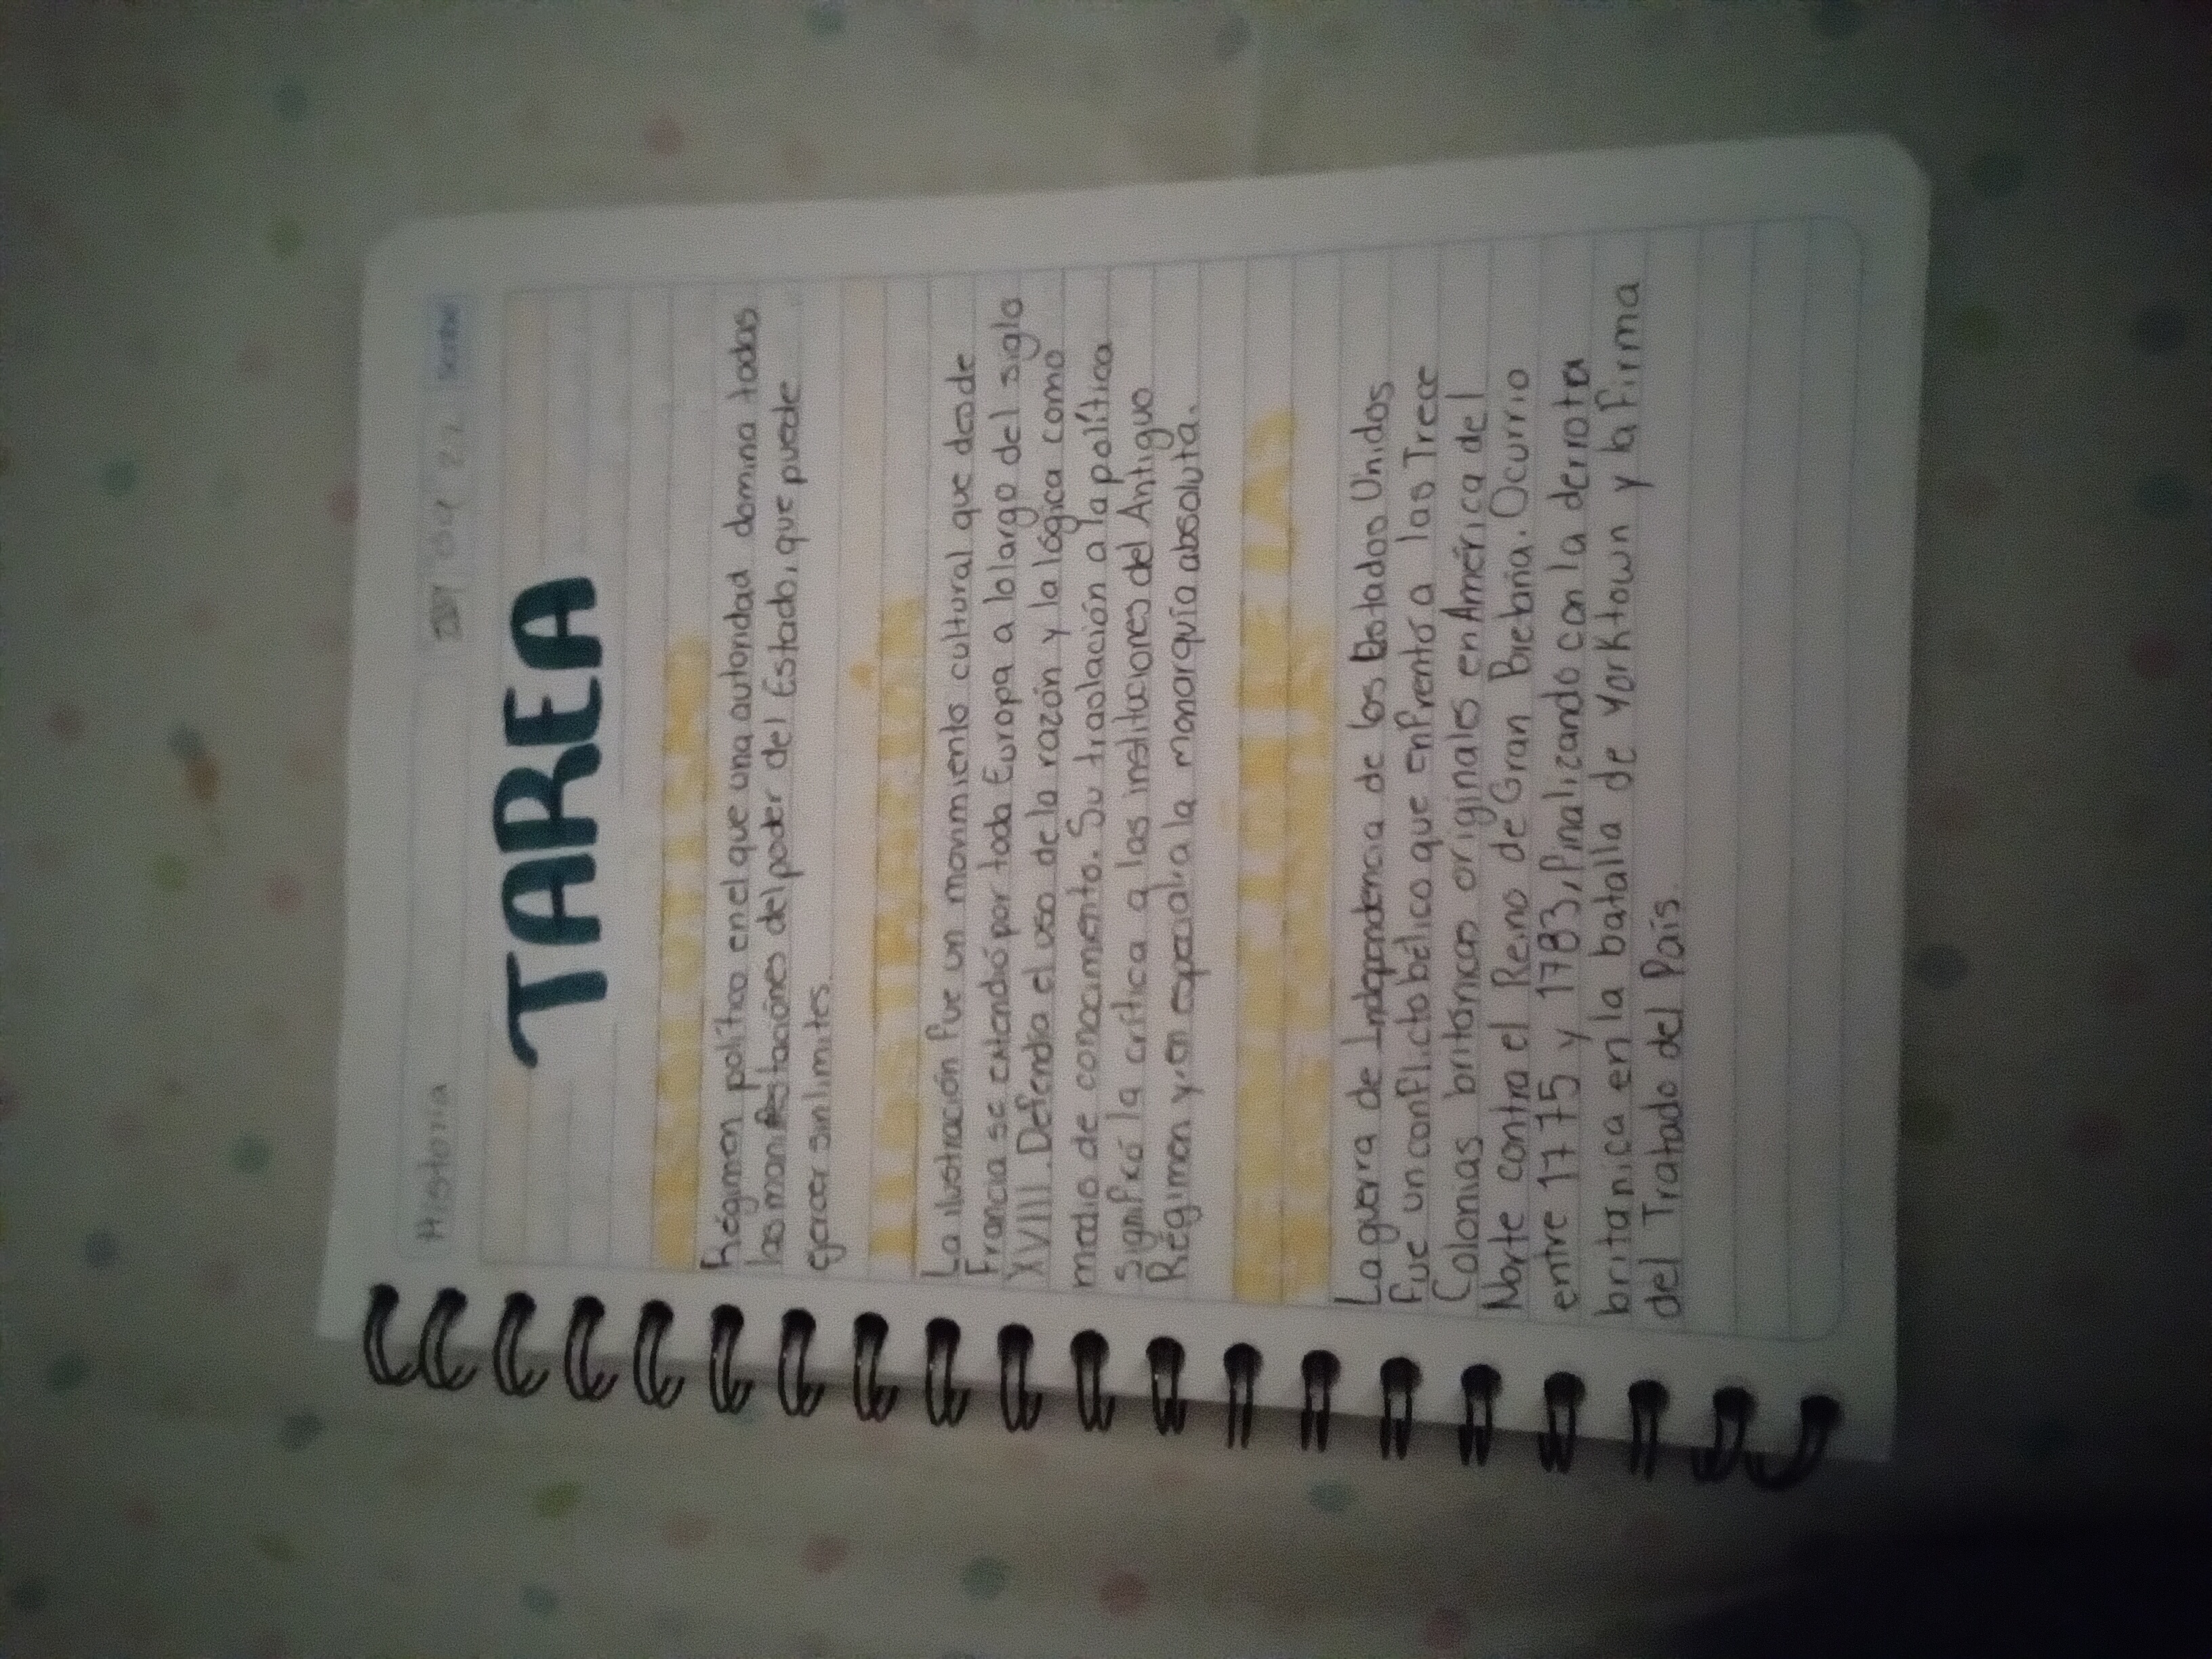 Historia
04 22
scribe
TAREA
ABSOLUTISMO
Régimen político en el que una autoridad domina todas
las manifestaciones del poder del Estado, que puede
ejercer sin limites.
ILUSTRACIÓN
La ilustración fue un movimiento cultural que desde
Francia se extendió por toda Europa a lo largo del siglo
XVIII. Defendia el uso de la razón y la lógica como
medio de conocimiento. Su traslación a la política
significó la crítica a las instituciones del Antiguo
Régimen y, en especial, a la monarquía absoluta.
La guerra de Independencia de los Estados Unidos
fue un conflicto bélico que enfrentó a las Trece
Colonias británicas originales en América del
Norte contra el Reino de Gran Bretaña. Ocurrio
entre 1775 y 1783, finalizando con la derrota
britanica en la batalla de Yorktown y la firma
del Tratado del País.